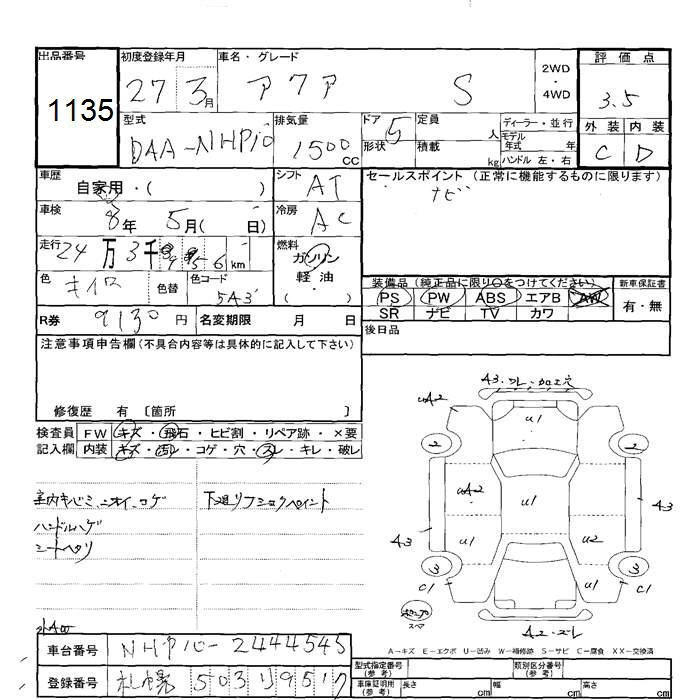 出品番号 1135
初度登録年月 27 3月
車名・グレード アクア S
2WD・4WD
評価点 3.5
外装 C 内装 D
型式 DAA-NHP10
排気量 1500 CC
ドア 5 形状
定員 人
積載 kg
ディーラー・並行
モデル年式 年
ハンドル 左・右
車歴 自家用・( )
シフト AT
セールスポイント (正常に機能するものに限ります)
ナビ
車検 8年 5月( 日)
冷房 AC
走行 24万3千 km
燃料 ガソリン 軽油 ( )
色 キイロ 色替 色コード 5A3
装備品 (純正品に限り○をつけてください)
PS PW ABS エアB AW
SR ナビ TV カワ
新車保証書 有・無
R券 9130円 名変期限 月 日
後日品
注意事項申告欄(不具合内容等は具体的に記入して下さい)
修復歴 有 〔箇所 〕
検査員記入欄
FW キズ・飛石・ヒビ割・リペア跡・×要
内装 キズ・汚レ・コゲ・穴・スレ・キレ・破レ
室内キバミ、ニオイ、コゲ
下廻リフショクペイント
ハンドルハゲ
シートヘタリ
A3
UA2
U1
2 2
UA2 U1
A3
A3 U1 U2
3 3
C1 U1 C1
スペア
A2
A-キズ E-エクボ U-凹み W-補修跡 S-サビ C-腐食 XX-交換済
車台番号 NHP10-2444545
登録番号 札幌 503
型式指定番号 (参考)
類別区分番号 (参考)
車庫証明用 (参考) 長さ cm 幅 cm 高さ cm